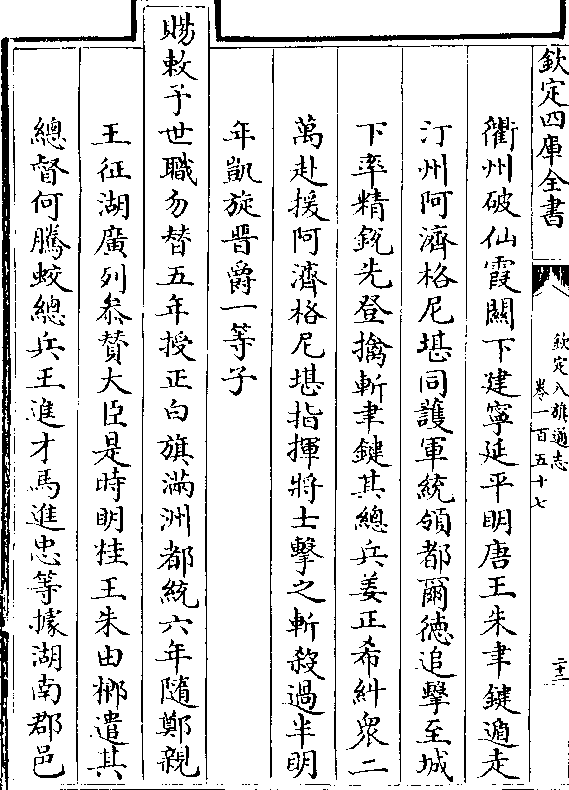 欽定四庫全書
欽定八旗通志
卷一百五十七
二十二
衢州破仙霞關下建寧延平明唐王朱聿鍵遁走
汀州阿濟格尼堪同護軍統領都爾德追擊至城
下率精銳先登擒斬聿鍵其總兵姜正希糾衆二
萬赴援阿濟格尼堪指揮將士擊之斬殺過半明
年凱旋晋爵一等子
賜敕予世職勿替五年授正白旗滿洲都統六年隨鄭親
王征湖廣列叅贊大臣是時明桂王朱由榔遣其
總督何騰蛟總兵王進才馬進忠等據湖南郡邑